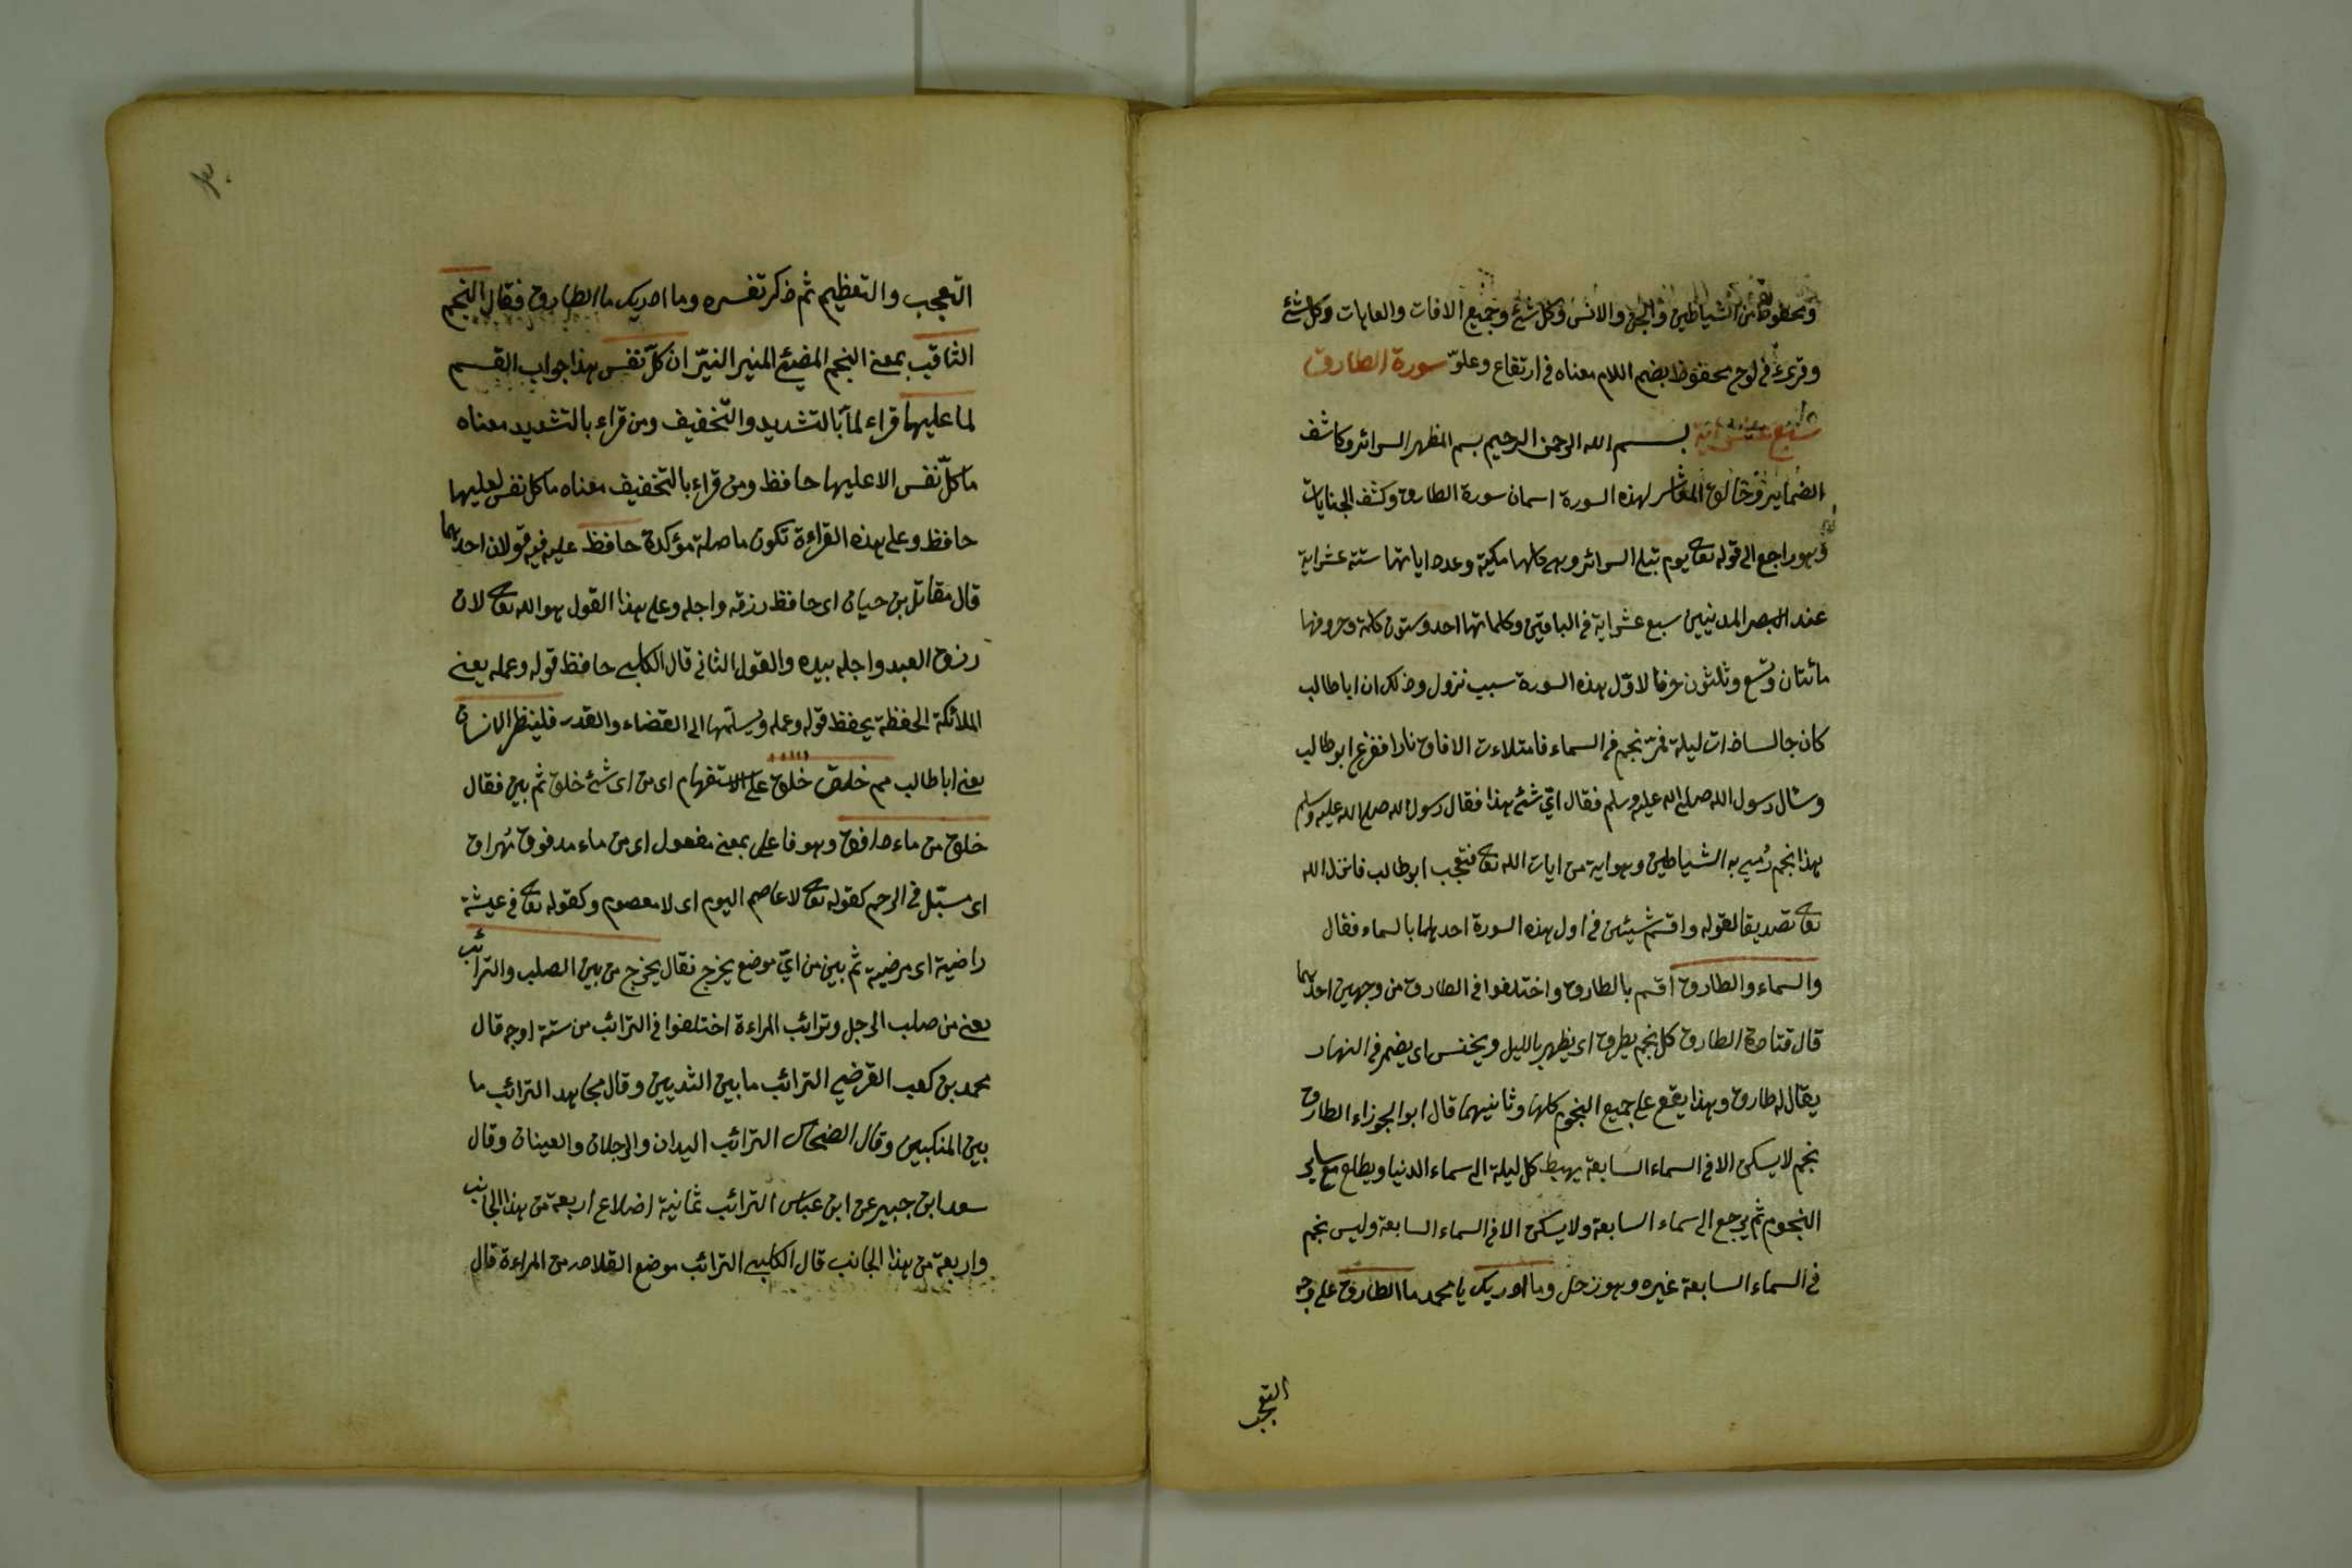 ومحفوظ من الشياطين والجن والانس وكل شئ وجميع الافات والعاهات وكل شئ
وقرئ في لوح محفوظ بضم اللام معناه في ارتفاع وعلوّ سورة الطارق
سبع عشر اية بسم الله الرحمن الرحيم بسم المظهر السرائر وكاشف
الضماير وخالق لهذه السورة اسمان سورة الطارق وكشف الجنايات
وهو راجع الى قوله تعا يوم تبلى السرائر وهى كلها مكية وعدد اياتها ستة عشر اية
عند المدنيين سبع عشر اية فى الباقين وكلماتها احد وستون كلمة وحروفها
مائتان وتسع وثلثون حرفا لاوّل هذه السورة سبب نزول وذلك ان ابا طالب
كان جالسا ذات ليلة فمرّ نجم فى السماء فامتلاءت الافاق نارا ففزع ابو طالب
وسال رسول الله صلى الله عليه وسلم فقال اىّ شئ هذا فقال رسول الله صلى الله عليه وسلم
هذا نجم رُمى به الشياطين وهو اية من ايات الله تعا فتعجب ابو طالب فانزل الله
تعا تصديقا لقوله واقسم شيئين في اول هذه السورة احدهما بالسماء فقال
والسماء والطارق اقسم بالطارق واختلفوا في الطارق من وجهين احدهما
قال قتادة الطارق كل نجم يطرق اى يظهر بالليل ويخنس اى يضمر فى النهار
يقال له طارق وهذا يقع على جميع النجوم كلها وثانيهما قال ابو الجوزاء الطارق
نجم لا يسكن الا في السماء السابعة يهبط كل ليلة الى سماء الدنيا ويطلع مع ساير
النجوم ثم يرجع الى سماء السابعة ولا يسكن الا فى السماء السابعة وليس نجم
فى السماء السابعة غيره وهو زحل وما ادريك يا محمد ما الطارق على وجه
التعجب
التعجب والتعظيم ثم ذكر تفسره وما ادريك ما الطارق فقال النجم
الثاقب بمعنى النجم المضيئ المنير النيّر ان كلّ نفس هذا جواب القسم
لما عليها قراء لمّا بالتشديد والتخفيف ومن قراء بالتشديد معناه
ما كلّ نفس الا عليها حافظ ومن قراء بالتخفيف معناه ما كل نفس لعليها
حافظ وعلى هذه القراءة تكون ما صلة مؤكدة حافظ عليه فيه قولان احدهما
قال مقاتل بن حيان اى حافظ رزقه واجله وعلى هذا القول هو الله تعا لان
رزق العبد واجله بيده والقول الثانى قال الكلبى حافظ قوله وعمله يعنى
الملائكة الحفظة يحفظ قوله وعمله ويسلمها الى القضاء والقدر فلينظر الانسان
يعنى ابا طالب مم خلق على الاستفهام اى من اى شئ خلق ثم بين فقال
خلق من ماء دافق وهو فاعل بمعنى مفعول اى من ماء مدفوق مُهراق
اى في الرحم كقوله تعا لا عاصم اليوم اى لا معصوم وكقوله تعا فى عيشة
راضية اى مرضية ثم بين من اىّ موضع يخرج فقال يخرج من بين الصلب والترائب
يعنى من صلب الرجل وترائب المراءة اختلفوا في الترائب من ستة اوجه قال
محمد بن كعب القرضي الترائب ما بين الثديين وقال مجاهد الترائب ما
بين المنكبين وقال الضحاك الترائب اليدان والرجلان والعينان وقال
سعد ابن جبير عن ابن عباس الترائب ثمانية اضلاع اربعة من هذا الجانب
واربعة من هذا الجانب قال الكلبى الترائب موضع القلادة من المراءة قال